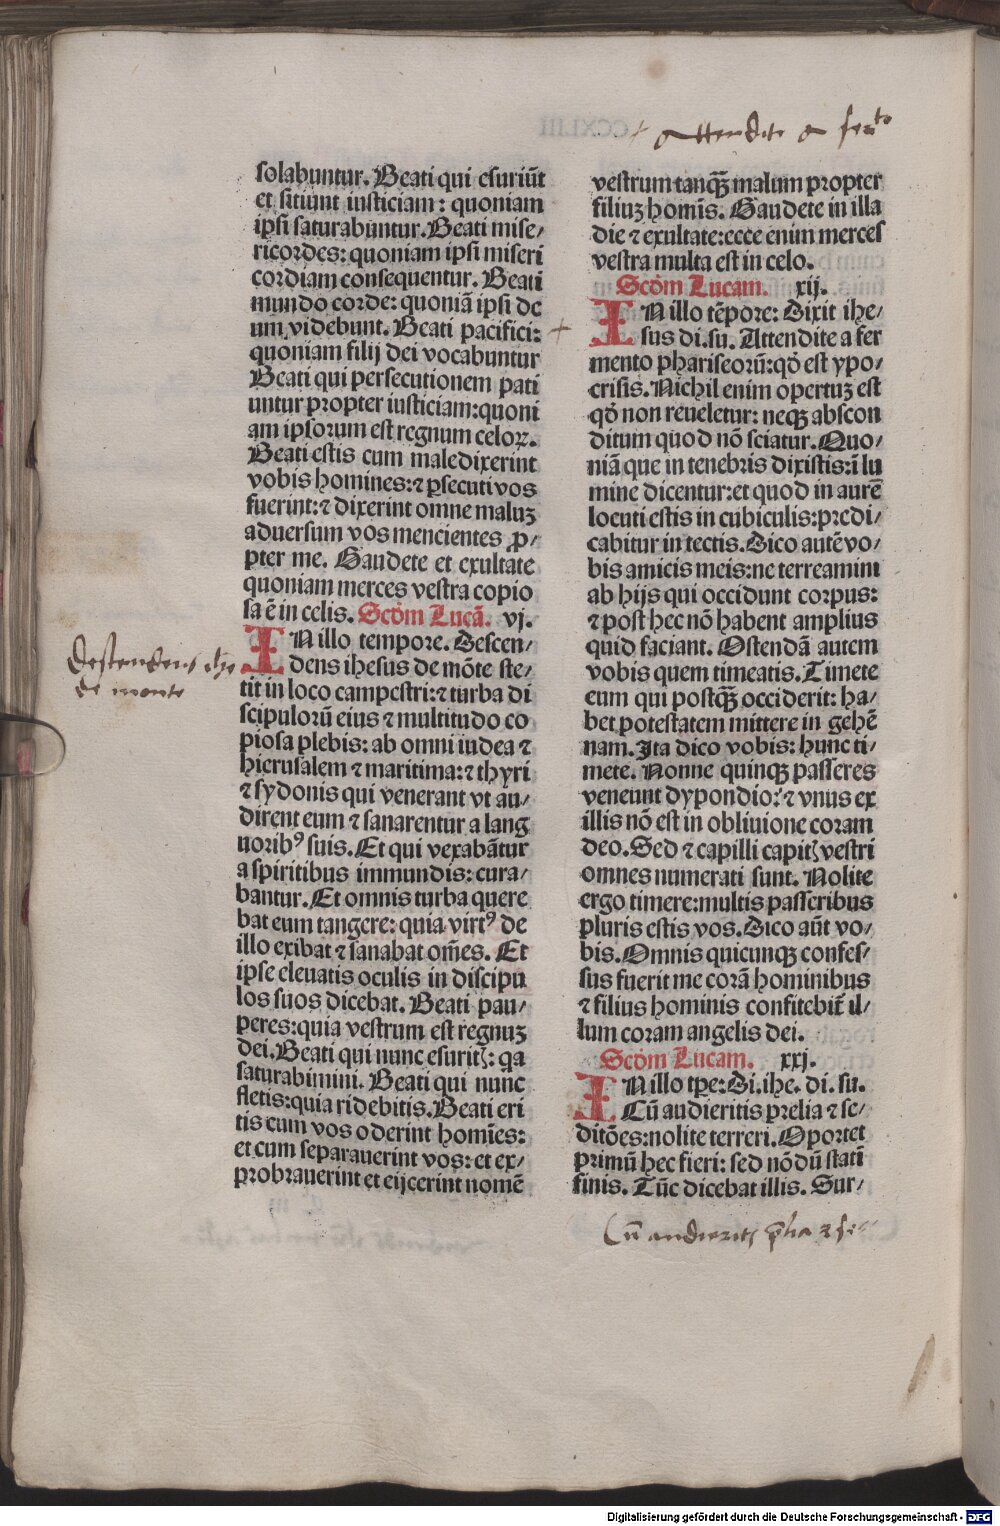 + Attendite a fermto
solabuntur. Beati qui esuriūt
et sitiunt iusticiam: quoniam
ipsi saturabuntur. Beati mise⸗
ricordes: quoniam ipsi miseri
cordiam consequentur. Beati
mundo corde: quoniā ipsi de
um videbunt. Beati pacifici:
quoniam filij dei vocabuntur
Beati qui persecutionem pati
untur propter iusticiam: quoni
am ipsorum est regnum celoꝝ.
Beati estis cum maledixerint
vobis homines: ⁊ ꝑsecuti vos
fuerint: ⁊ dixerint omne maluꝫ
aduersum vos mencientes ꝓ⸗
pter me. Gaudete et exultate
quoniam merces vestra copio
sa ē in celis. Scd̄m Lucā. vj.
IN illo tempore. Descen⸗
dens ihesus de mōte ste⸗
tit in loco campestri: ⁊ turba di
scipulorū eius ⁊ multitudo co
piosa plebis: ab omni iudea ⁊
hierusalem ⁊ maritima: ⁊ thyri
⁊ sydonis qui venerant vt au⸗
dirent eum ⁊ sanarentur a lang
uoribꝰ suis. Et qui vexabātur
a spiritibus immundis: cura⸗
bantur. Et omnis turba quere
bat eum tangere: quia virtꝰ de
illo exibat ⁊ sanabat om̄es. Et
ipse eleuatis oculis in discipu
los suos dicebat. Beati pau⸗
peres: quia vestrum est regnuꝫ
dei. Beati qui nunc esuritꝭ: qa
saturabimini. Beati qui nunc
fletis: quia ridebitis. Beati eri
tis cum vos oderint homīes:
et cum separauerint vos: et ex⸗
probrauerint et eijcerint nomē
Descendens ihs
de monte
vestrum tanqꝫ malum propter
filiuꝫ homīs. Gaudete in illa
die ⁊ exultate: ecce enim merces
vestra multa est in celo.
Scd̄m Lucam. xij.
+ IN illo tēpore: Dixit ihe⸗
sus di. su. Attendite a fer
mento phariseorū: qd̄ est ypo⸗
crisis. Nichil enim opertuꝫ est
qd̄ non reueletur: neqꝫ abscon
ditum quod nō sciatur. Quo⸗
niā que in tenebris dixistis: ī lu
mine dicentur: et quod in aurē
locuti estis in cubiculis: predi⸗
cabitur in tectis. Dico autē vo⸗
bis amicis meis: ne terreamini
ab hijs qui occidunt corpus:
⁊ post hec nō habent amplius
quid faciant. Ostendā autem
vobis quem timeatis. Timete
eum qui postqꝫ occiderit: ha⸗
bet potestatem mittere in gehē
nam. Ita dico vobis: hunc ti⸗
mete. Nonne quinqꝫ passeres
veneunt dypondio: ⁊ vnus ex
illis nō est in obliuione coram
deo. Sed ⁊ capilli capitꝭ vestri
omnes numerati sunt. Nolite
ergo timere: multis passeribus
pluris estis vos. Dico aūt vo⸗
bis. Omnis quicunqꝫ confes⸗
sus fuerit me corā hominibus
⁊ filius hominis confitebit̄ il⸗
lum coram angelis dei.
Scd̄m Lucam. xxj.
IN illo tp̄e: Di. ihe. di. su.
Cū audieritis prelia ⁊ se⸗
ditōes: nolite terreri. Oportet
primū hec fieri: sed nōdū statī
finis. Tūc dicebat illis. Sur⸗
Cū audieritꝭ p̄lia ⁊ se
Digitalisierung gefördert durch die Deutsche Forschungsgemeinschaft - DFG